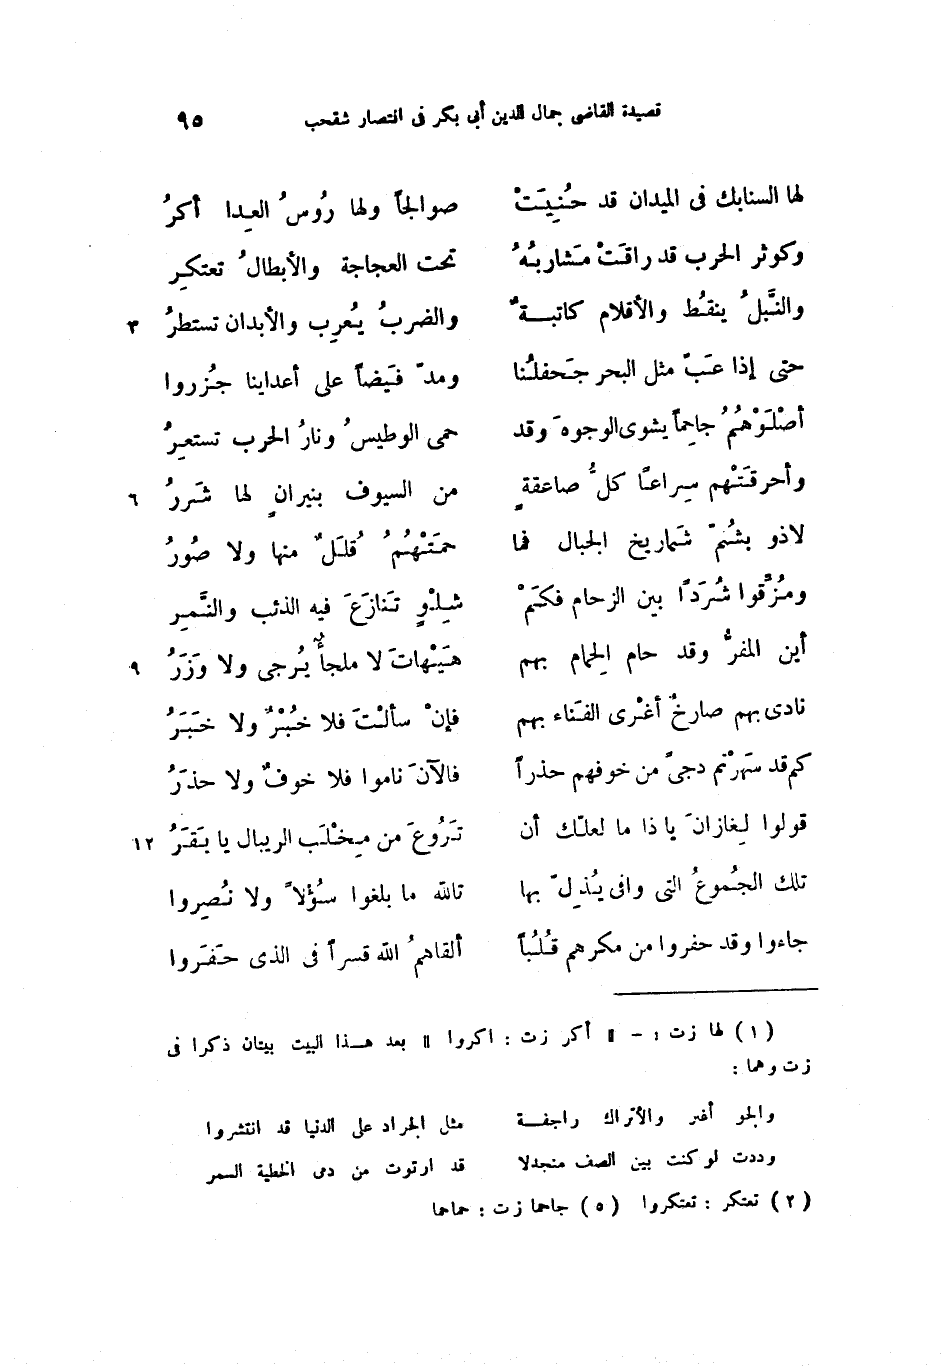 قصيدة القاضى جمال الدين أبى بكر فى انتصار شقحب ٩٥
لها السنابك فى الميدان قد حُنِيَتْ صوالجاً ولها رُوسُ العِدا أكرُ
وكوثر الحرب قد راقَتْ مَشاربُهُ تحت العجاجة والأبطالُ تعتكِر
والنَّبلُ ينقُط والأقلام كاتبـةٌ والضربُ يُعرِب والأبدان تستطرُ ٣
حتى إذا عَبّ مثل البحر جَحفلُنا ومدّ فَيضاً على أعداينا جُزروا
أصْلَوْهُمُ جاحِماً يشوى الوجوهَ وقد حمى الوطيسُ ونارُ الحرب تستعِرُ
وأحرقَتْهم سِراعاً كلُّ صاعقةٍ من السيوف بنيرانٍ لها شَررُ ٦
لاذو بشُمّ شَماريخ الجبال فما حمَتْهُمُ قُللٌ منها ولا صُورُ
ومُزِّقوا شُرَداً بين الزحام فكَمْ شِلْوٍ تَنازَعَ فيه الذئب والنَّمِر
أين المفرُّ وقد حام الِحمام بهم هَيْهاتَ لا ملجأٌ يُرجى ولا وَزَرُ ٩
نادى بهم صارخٌ أغْرى الفَناء بهم فإنْ سألْتَ فلا خُبْرٌ ولا خَبَرُ
كم قد سَهِرْتم دجىً من خوفهم حذراً فالآنَ ناموا فلا خوفٌ ولا حذَرُ
قولوا لِغازانَ يا ذا ما لعلّك أن تَرُوعَ من مِخْلَب الريبال يا بَقَرُ ١٢
تلك الجُموعُ التى وافى يُذِلّ بها تالله ما بلغوا سُؤلاً ولا نُصِروا
جاءوا وقد حفروا من مكرهم قُلُباً ألقاهمُ الله قسراً فى الذى حَفَروا
(١) لها زت : - ‖ أكر زت : اكروا ‖ بعد هـذا البيت بيتان ذكرا فى
زت وهما :
والجو أغبر والأتراك راجفـة مثل الجراد على الدنيا قد انتشروا
وددت لو كنت بين الصف منجدلا قد ارتوت من دمى الخطية السمر
(٢) تعتكر : تعتكروا (٥) جاحما زت : حماحما